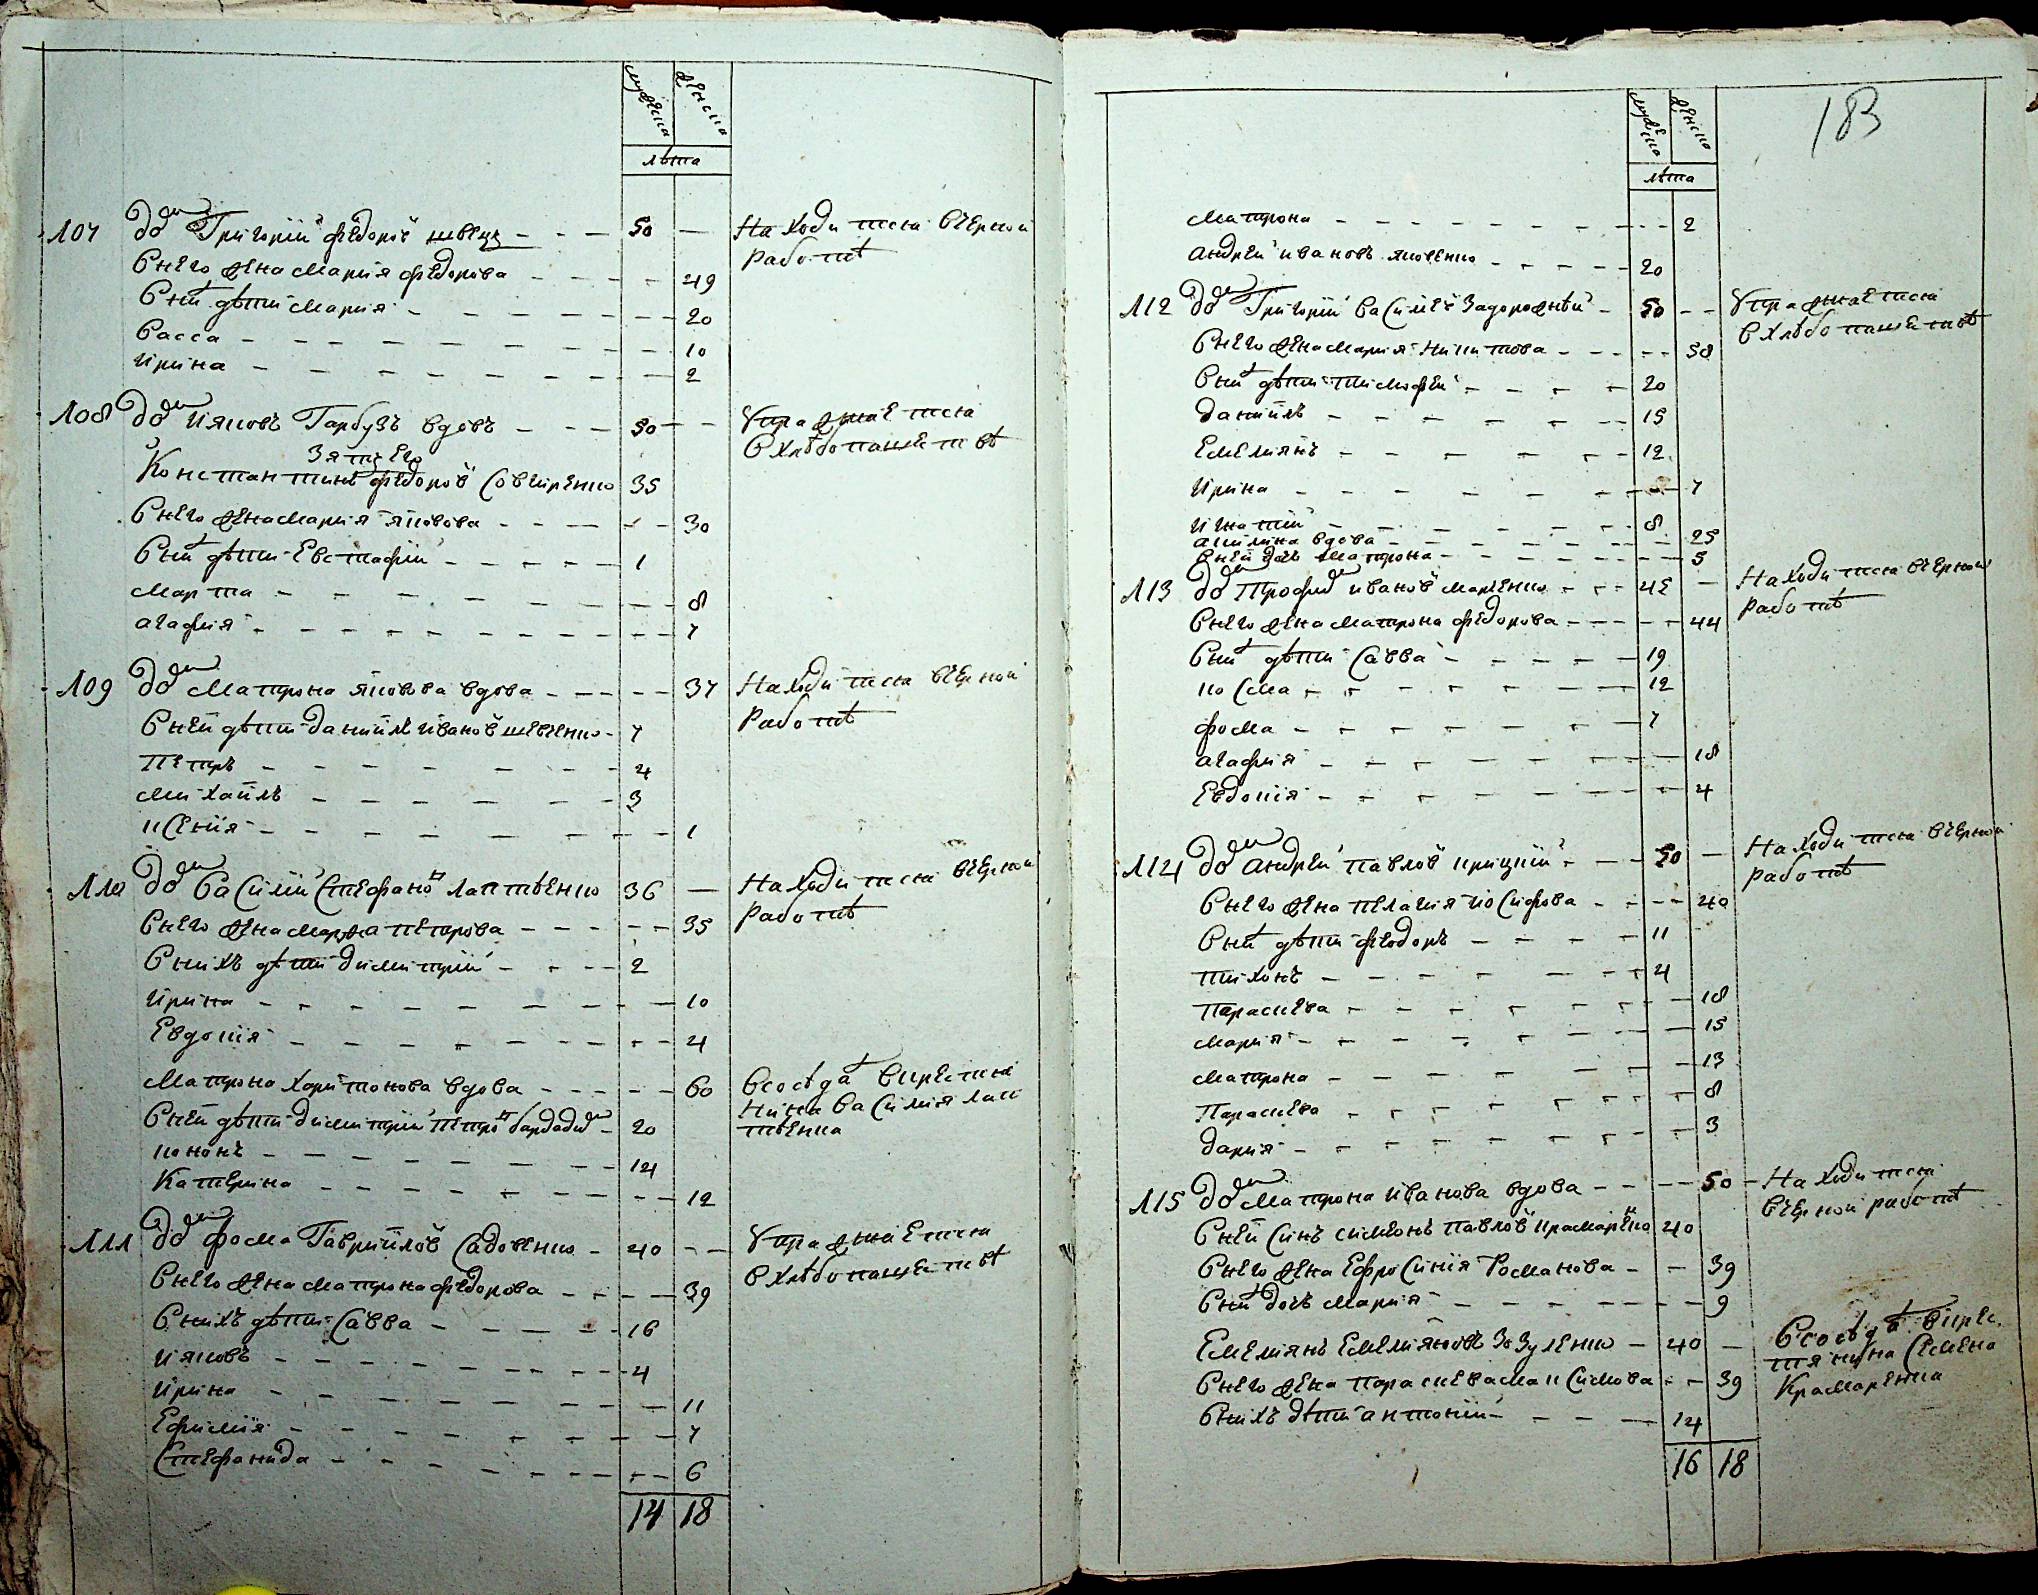 мужеска женска
лѣта
107 Дом Григорій Федоров Швец 50 — Находится в черной
работѣ
В него жена Мария Федорова 49
В них дѣти Мария 20
Васса 10
Ирина 2
108 Дом Ияков Гарбузъ вдовъ 50 — Упражнается
в хлѣбопашествѣ
Зять Его
Константинъ Федоров Совѣиренко 35
В него жена Мария Яковова 30
В них дѣти Евстафий 1
Марта 8
Агафия 7
109 Дом Матрона Яковова вдова 37 Находится в черной
работѣ
В ней дѣти Даниил Иванов Шевченко 7
Петръ 4
Михаилъ 3
Ксения 1
110 Дом Василий Стефанов Лаптѣенко 36 — Находится в черной
работѣ
В него жена Марфа Петрова 35
В нихъ дѣти Димитрий 2
Ирина 10
Евдокия 4
Матрона Харитонова вдова 60 В сосѣдах в крестья
нина Василия Лап
тѣенка
В ней дѣти Димитрий Петров Бардадим 20
Кононъ 14
Катерина 12
111 Дом Фома Гавриилов Садовенко 40 — Упражнается
в хлѣбопашествѣ
В него жена Матрона Федорова 39
В нихъ дѣти Савва 16
Ияковъ 4
Ирина 11
Ефимия 7
Стефанида 6
14 18
183
мужеска женска
лѣта
Матрона 2
Андрей Ивановъ Яковенко 20
112 Дом Григорий Василиев Задорожний 50 — Упражнается
в хлѣбопашествѣ
В него жена Мария Никитова 58
В них дѣти Тимофей 20
Даниилъ 15
Емелиянъ 12
Ирина 7
Игнатий 8
Акилина вдова 25
В ней дочь Матрона 5
113 Дом Трофим Иванов Марченко 45 — Находится в черной
работѣ
В него жена Матрона Федорова 44
В них дѣти Савва 19
Косма 12
Фома 7
Агафия 18
Евдокия 4
114 Дом Андрей Павлов Крицкий 50 — Находится в черной
работѣ
В него жена Пелагия Иосифова 40
В них дѣти Феодоръ 11
Тихонъ 4
Параскева 18
Мария 15
Матрона 13
Параскева 8
Дария 3
115 Дом Матрона Иванова вдова 50 — Находится
в черной работѣ
В ней синъ Симеонъ Павлов Крамаренко 40
В него жена Ефросиния Романова 39
В них дочь Мария 9
Емелиянъ Емелияновъ Зозуленко 40 — В сосѣдѣ в крес
тянина Семена
Крамаренка
В него жена Параскева Максимова 39
В нихъ дѣти Антоний 14
16 18